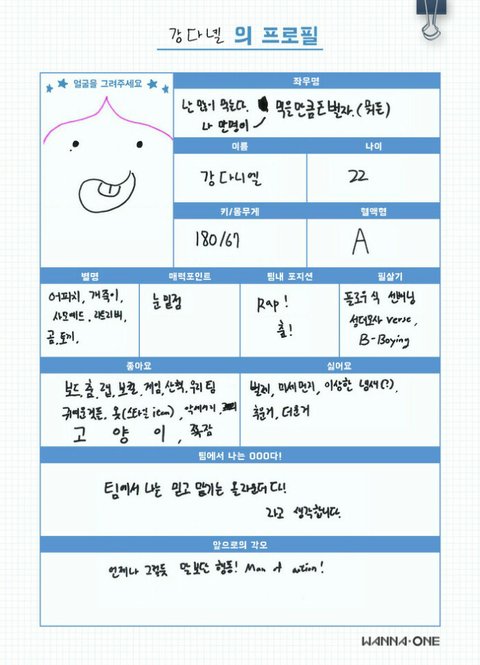 강다넬 의 프로필
얼굴을 그려주세요
좌우명
난 많이 먹는다. 먹을만큼 돈벌자. (뭐든)
나 만명이
이름
나이
강다니엘
22
키/몸무게
혈액형
180/67
A
별명
매력포인트
팀내 포지션
필살기
어피치, 개죽이,
사모예드,
곰, 토끼,
눈밑점
Rap!
춤!
플로우식
성대모사 verse,
B-Boying
좋아요
싫어요
보드, 춤, 랩, 보컬, 게임, 산책, 우리팀
귀여운것들, 옷(스타일 item), 악세서리,
고양이, 족감
벌레, 미세먼지, 이상한 냄새(?),
추운거, 더운거
팀에서 나는 OOO다!
팀에서 나는 믿고 맡기는 올라운더다!
라고 생각합니다.
앞으로의 각오
언제나 그렇듯 말보단 행동! Man of action!
WANNA·ONE